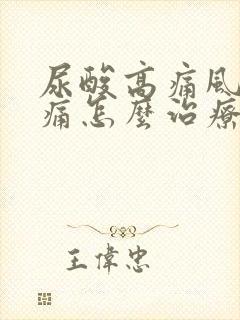 尿酸高痛風
痛怎麼治療
王偉忠